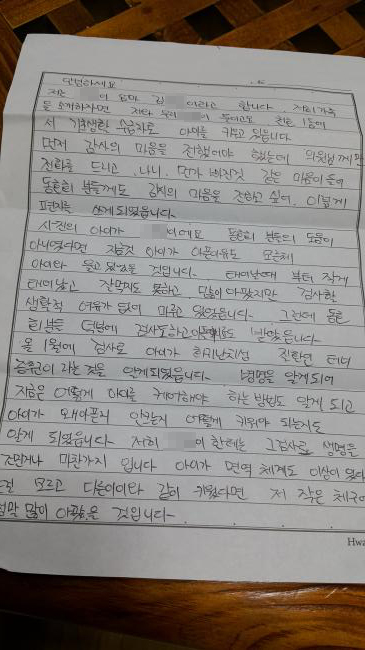 안녕하세요
저는 이 엄마 김 이라고 합니다. 저희가족
을 소개하자면 저와 우리 이 둘이고요 전 1동에
서 기초생활 수급자로 아이를 키우고 있습니다
먼저 감사의 마음을 전했어야 했는데 의원님께만
전화를 드리고 나니 뭔가 빠진것 같은 마음이 들어
동료의 분들께도 감사의 마음을 전하고 싶어 이렇게
편지를 쓰게 되었습니다
사진의 아이가 이에요 동료의 분들의 도움이
아니었다면 지금껏 아이가 아픈이유도 모른체
아이와 울고 있었을 것입니다. 태어날때 부터 작게
태어났고 잘먹지도 못하고 많이 아팠지만 검사할
생활적 여유가 없어 미루고 있었습니다. 그런데 동료
의 분들 덕분에 검사도하고 받았습니다
올 1월에 검사로 아이가 희귀난치성 질환인 터너
증후군이 라는 것을 알게되었습니다. 병명을 알게되어
지금은 어떻게 아이를 케어해야 하는 방법도 알게 되고
아이가 왜 아픈지 안크는지 어떻게 키워야 되는지도
알게 되었습니다. 저희 이 한테는 그검사로 생명을
건진거나 마찬가지 입니다 아이가 면역 체계도 이상이 있다
걸 모르고 다른아이와 같이 키웠다면 저 작은 체구에
정말 많이 아팠을 것입니다
Hwa